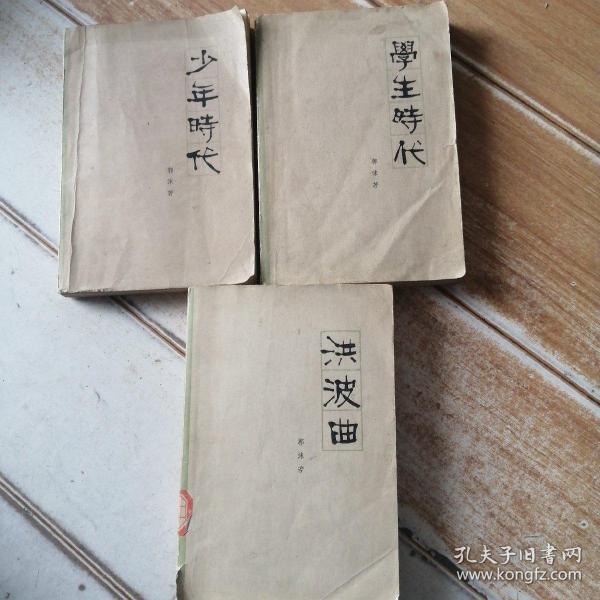 少年時代
郭沫若
學生時代
郭沫若
洪波曲
郭沫若
孔夫子旧书网
www.kongfz.com